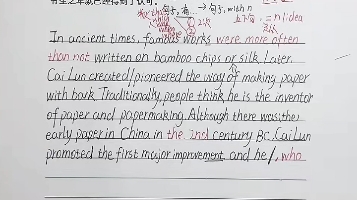 在生之年就已经得到了认可。
In ancient times, famous works were more often
than not written on bamboo chips or silk. Later
Cai Lun created/pioneered the way of making paper
with bark. Traditionally, people think he is the inventor
of paper and papermaking. Although there was the
early paper in China in the 2nd century BC. Cai Lun
promoted the first major improvement and he/, who